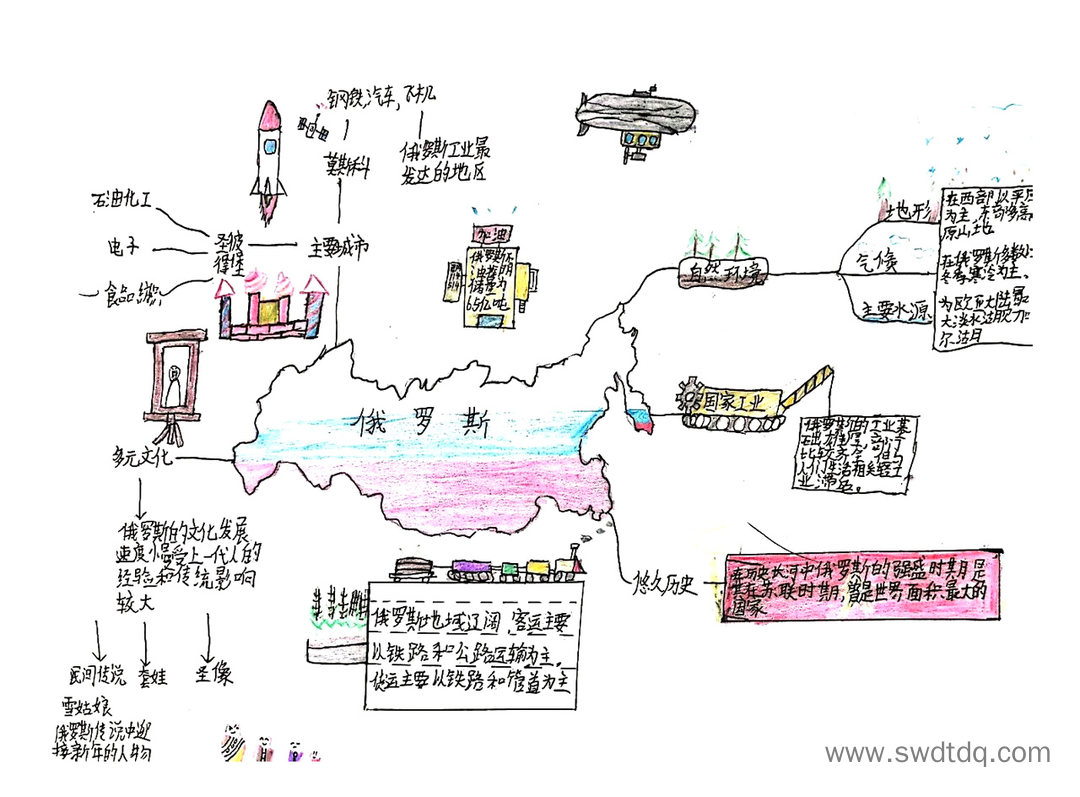 钢铁,汽车,飞机
莫斯科
俄罗斯工业最
发达的地区
石油化工
电子
食品、纺织
圣彼
得堡
主要城市
加油
俄罗斯
储量为
65亿吨
自然环境
地形
在西部以平原
为主,东部多高
原山地
气候
在俄罗斯多数处
冬季寒冷为主。
主要水源
为欧亚大陆最
大淡水湖贝加
尔湖
俄罗斯
国家工业
俄罗斯的工业基
础雄厚,部门
比较齐全,但与
人们生活相关轻工
业滞后。
多元文化
俄罗斯的文化发展
速度小慢受上一代人的
经验和传统影响
较大
民间传说
套娃
圣像
雪姑娘
俄罗斯传说中迎
接新年的人物
俄罗斯地域辽阔,客运主要
以铁路和公路运输为主,
货运主要以铁路和管道为主
悠久历史
在历史长河中俄罗斯的强盛时期是
在苏联时期,曾是世界面积最大的
国家
www.swdtdq.com